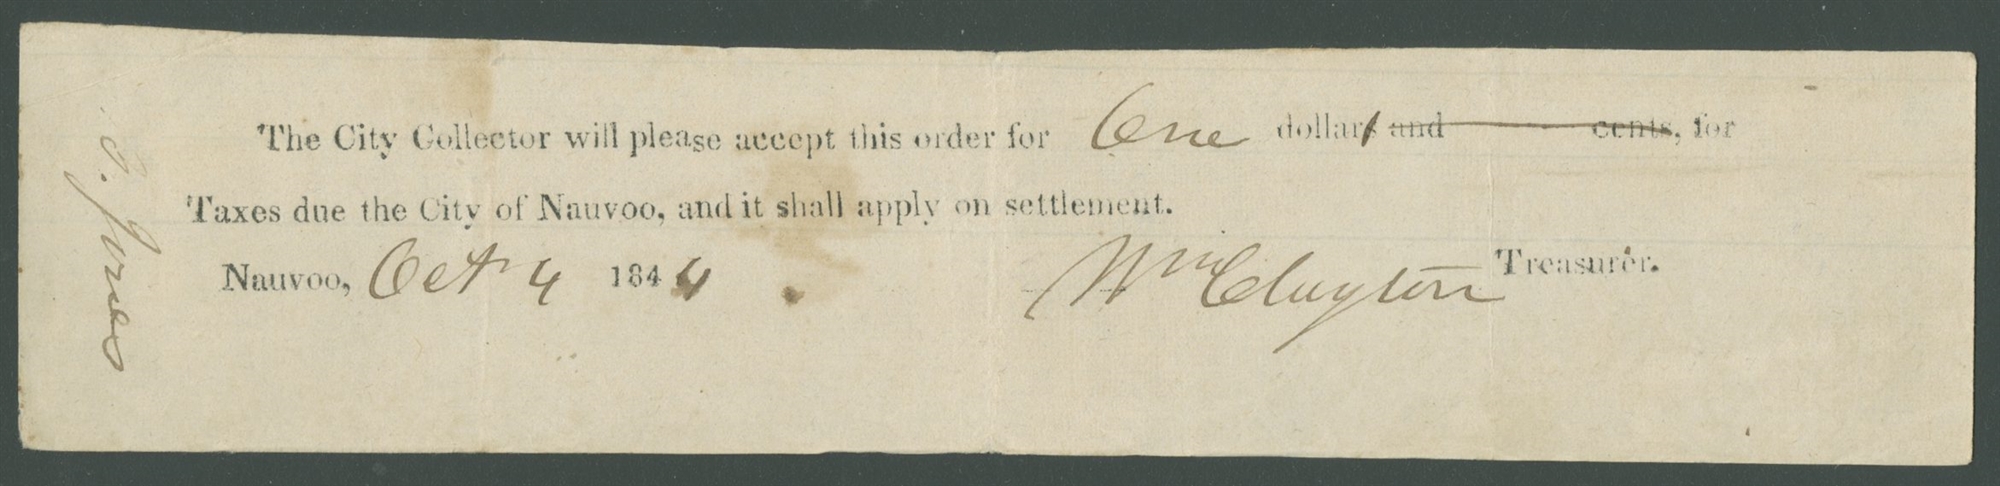 The City Collector will please accept this order for One dollars and cents, for
Taxes due the City of Nauvoo, and it shall apply on settlement.
Nauvoo, Oct 4 1844. Wm Clayton Treasurer.
Jones